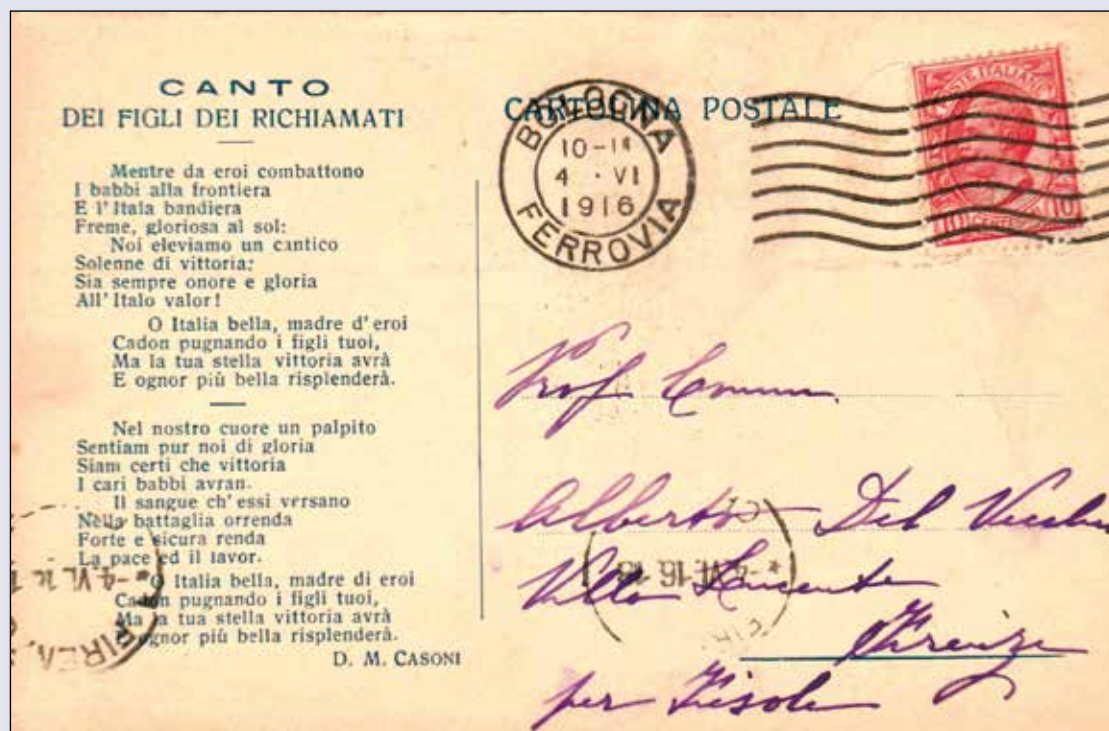 CANTO
DEI FIGLI DEI RICHIAMATI
Mentre da eroi combattono
I babbi alla frontiera
E l'Itala bandiera
Freme, gloriosa al sol:
Noi eleviamo un cantico
Solenne di vittoria:
Sia sempre onore e gloria
All'Italo valor!
O Italia bella, madre d'eroi
Cadon pugnando i figli tuoi,
Ma la tua stella vittoria avrà
E ognor più bella risplenderà.
Nel nostro cuore un palpito
Sentiam pur noi di gloria
Siam certi che vittoria
I cari babbi avran.
Il sangue ch'essi versano
Nella battaglia orrenda
Forte e sicura renda
La pace ed il lavor.
O Italia bella, madre di eroi
Cadon pugnando i figli tuoi,
Ma la tua stella vittoria avrà
E ognor più bella risplenderà.
D. M. CASONI
CARTOLINA POSTALE
BOLOGNA
10-11
4 · VI
1916
FERROVIA
POSTE ITALIANE
10 10
Prof Comm.
Alberto Del Vecchio
Villa
Firenze
per Fiesole
-4.VI.16